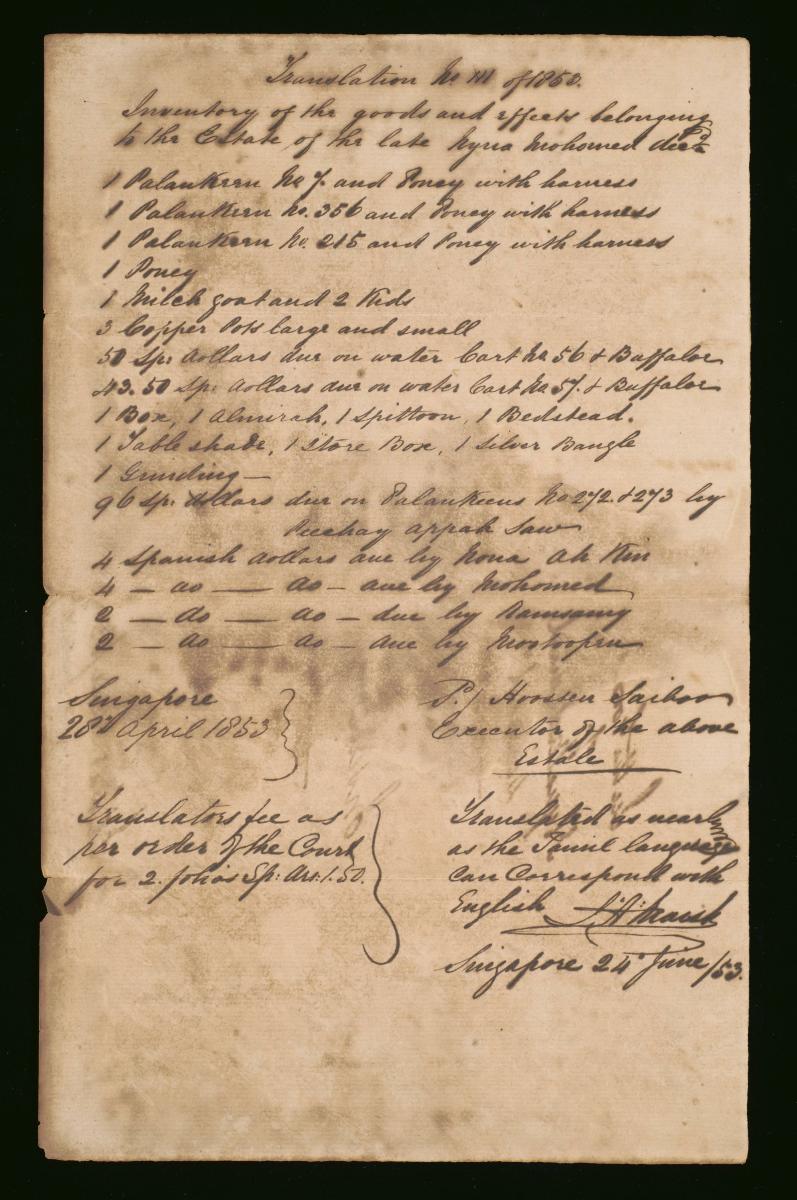 Translation No. III of 1853.
Inventory of the goods and effects belonging
to the Estate of the late Nyna Mohomed decd
1 Palankeen No 7. and Poney with harness
1 Palankeen No. 356 and Poney with harness
1 Palankeen No. 215 and Poney with harness
1 Poney
1 Milch goat and 2 Kids
3 Copper Pots large and small
50 Sp: dollars due on water Cart No 56 & Buffaloe
43.50 Sp: dollars due on water Cart No 57. & Buffaloe
1 Box, 1 Almirah, 1 Spittoon, 1 Bedstead.
1 Table shade, 1 Store Box, 1 Silver Bangle
1 Grinding —
96 Sp: dollars due on Palankeens No 272. & 273 by
Pitchay Appah Saw
4 Spanish dollars due by Nona Ah Kin
4 — do — do — due by Mohomed
2 — do — do — due by Ramsamy
2 — do — do — due by Mootoopen
Singapore
28th April 1853
P./ Hoossen Saiboo
Executor of the above
Estate
Translators fee as
per order of the Court
for 2. folios Sp: drs: 1.50.
Translated as nearly
as the Tamil language
can correspond with
English
Singapore 24th June /53.